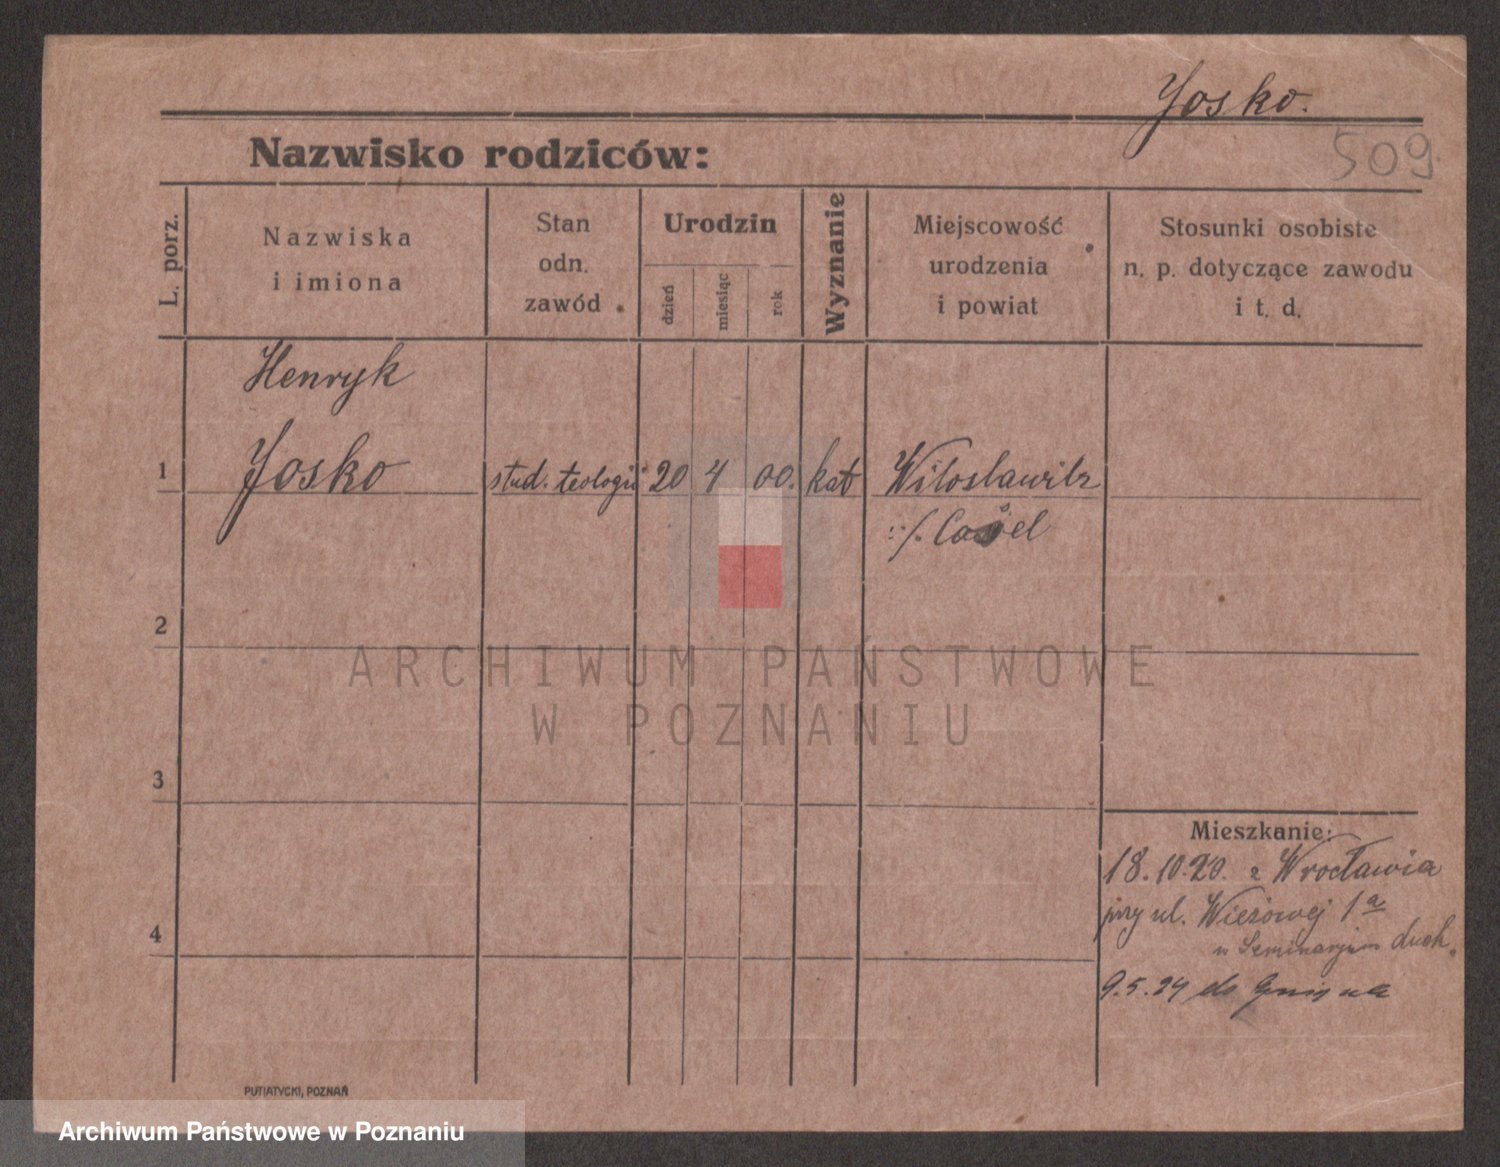 Josko.
509
Nazwisko rodziców:
L. porz.
Nazwiska
i imiona
Stan
odn.
zawód
Urodzin
dzień
miesiąc
rok
Wyznanie
Miejscowość
urodzenia
i powiat
Stosunki osobiste
n. p. dotyczące zawodu
i t. d.
Henryk
1 Josko stud. teologii 20 4 00. kat
:/. Cosel
2
3
4
Mieszkanie:
18.10.20. z Wrocławia
przy ul. Wieżowej 1a
w Seminarjum duch.
9.5.24 do Gniezna
PUTIATYCKI, POZNAŃ
ARCHIWUM PAŃSTWOWE
W POZNANIU
Archiwum Państwowe w Poznaniu